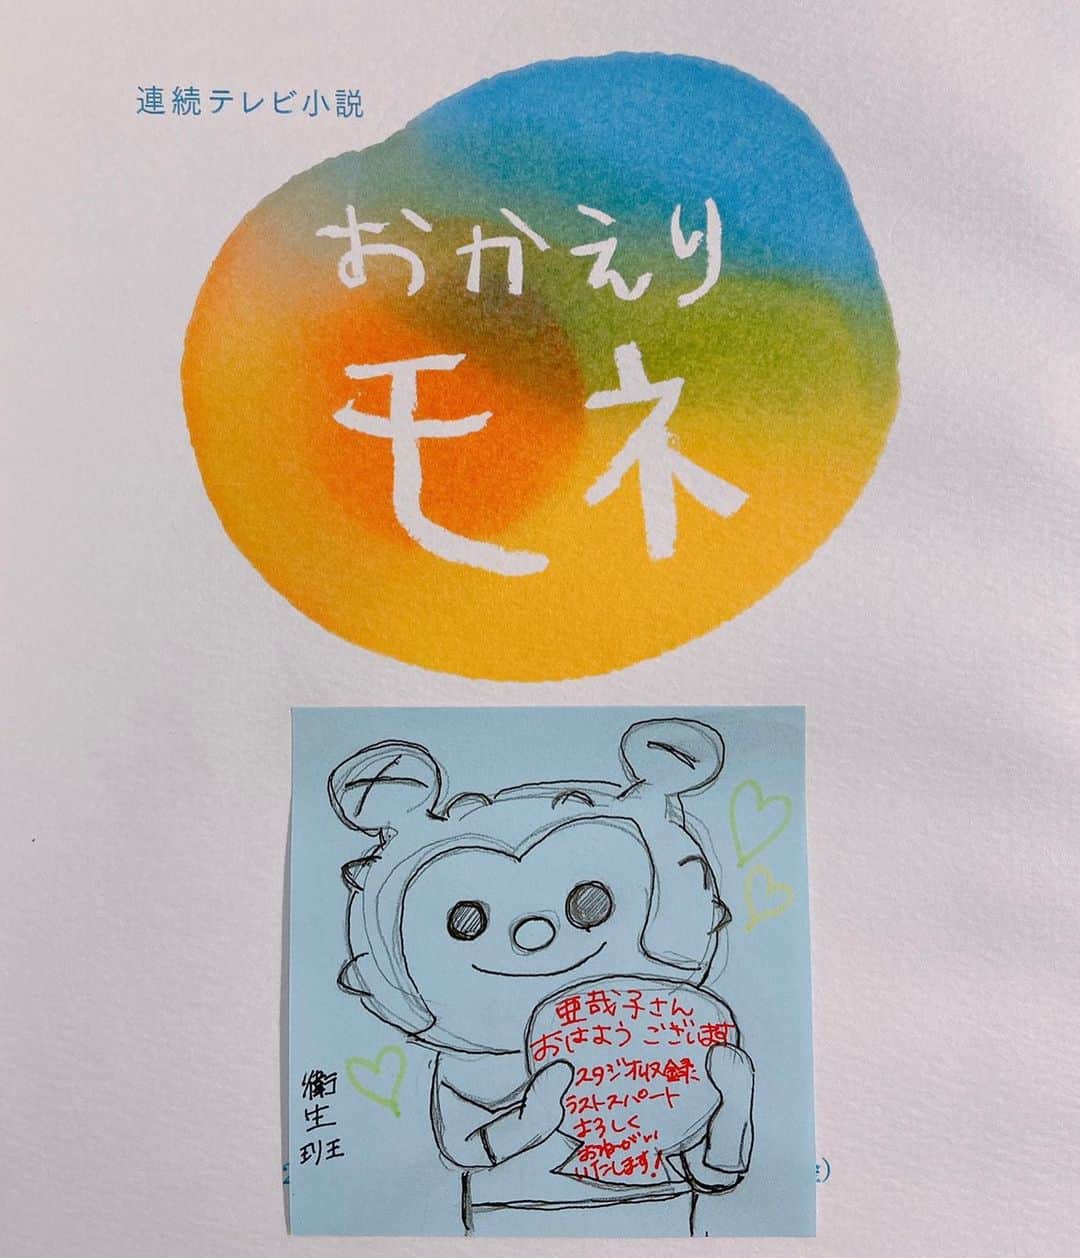 連続テレビ小説
おかえり
モネ
亜哉子さん
おはよう ございます
スタジオ収録
ラストスパート
よろしく
おねがい
いたします!
衛
生
班